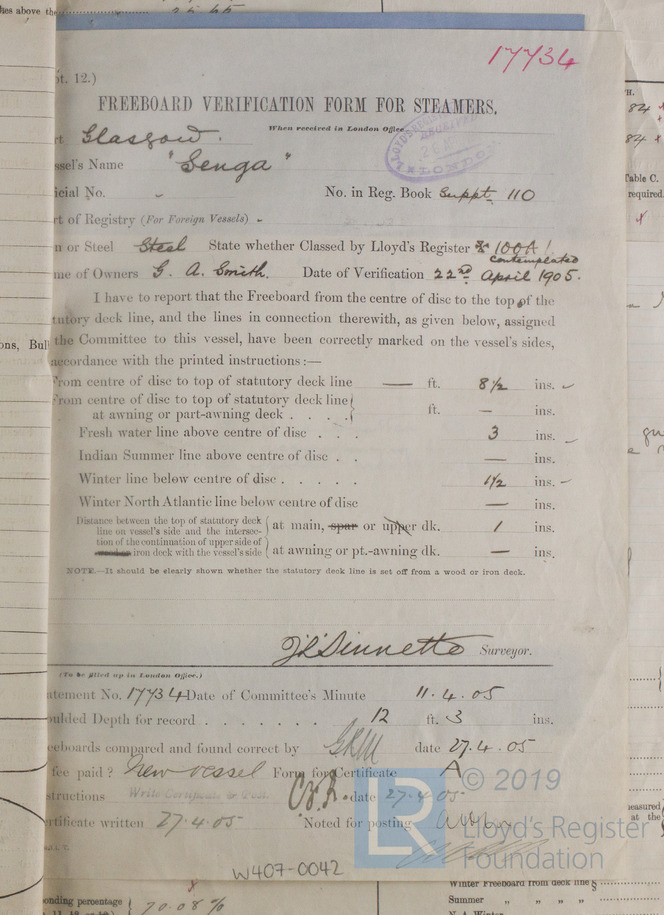 17734
pt. 12.)
FREEBOARD VERIFICATION FORM FOR STEAMERS.
When received in London Office
LONDON
rt Glasgow.
ssel's Name "Senga"
icial No. - No. in Reg. Book Suppt. 110
rt of Registry (For Foreign Vessels) -
n or Steel Steel State whether Classed by Lloyd's Register 100A1
contemplated
me of Owners G. A. Smith. Date of Verification 22nd April 1905.
I have to report that the Freeboard from the centre of disc to the top of the
tutory deck line, and the lines in connection therewith, as given below, assigned
the Committee to this vessel, have been correctly marked on the vessel's sides,
accordance with the printed instructions:—
From centre of disc to top of statutory deck line — ft. 8½ ins.
From centre of disc to top of statutory deck line
at awning or part-awning deck . . . . ft. — ins.
Fresh water line above centre of disc . . . 3 ins.
Indian Summer line above centre of disc . . — ins.
Winter line below centre of disc . . . . . 1½ ins.
Winter North Atlantic line below centre of disc — ins.
Distance between the top of statutory deck
line on vessel's side and the intersec-
tion of the continuation of upper side of
iron deck with the vessel's side
at main, spar or upper dk. 1 ins.
at awning or pt.-awning dk. — ins.
NOTE.—It should be clearly shown whether the statutory deck line is set off from a wood or iron deck.
Surveyor.
(To be filled up in London Office.)
atement No. 17734 Date of Committee's Minute 11.4.05
oulded Depth for record . . . . . . . 12 ft. 3 ins.
eeboards compared and found correct by date 27.4.05
fee paid? New vessel Form for Certificate A
structions date 27.4.05
rtificate written 27.4.05 Noted for posting
W407-0042
LR
© 2019
Lloyd's Register
Foundation
ies above the
ons, Bul
onding percentage
70.08%
84
84
Table C.
required.
easured
at the
Winter Freeboard from deck line
Summer " " " "